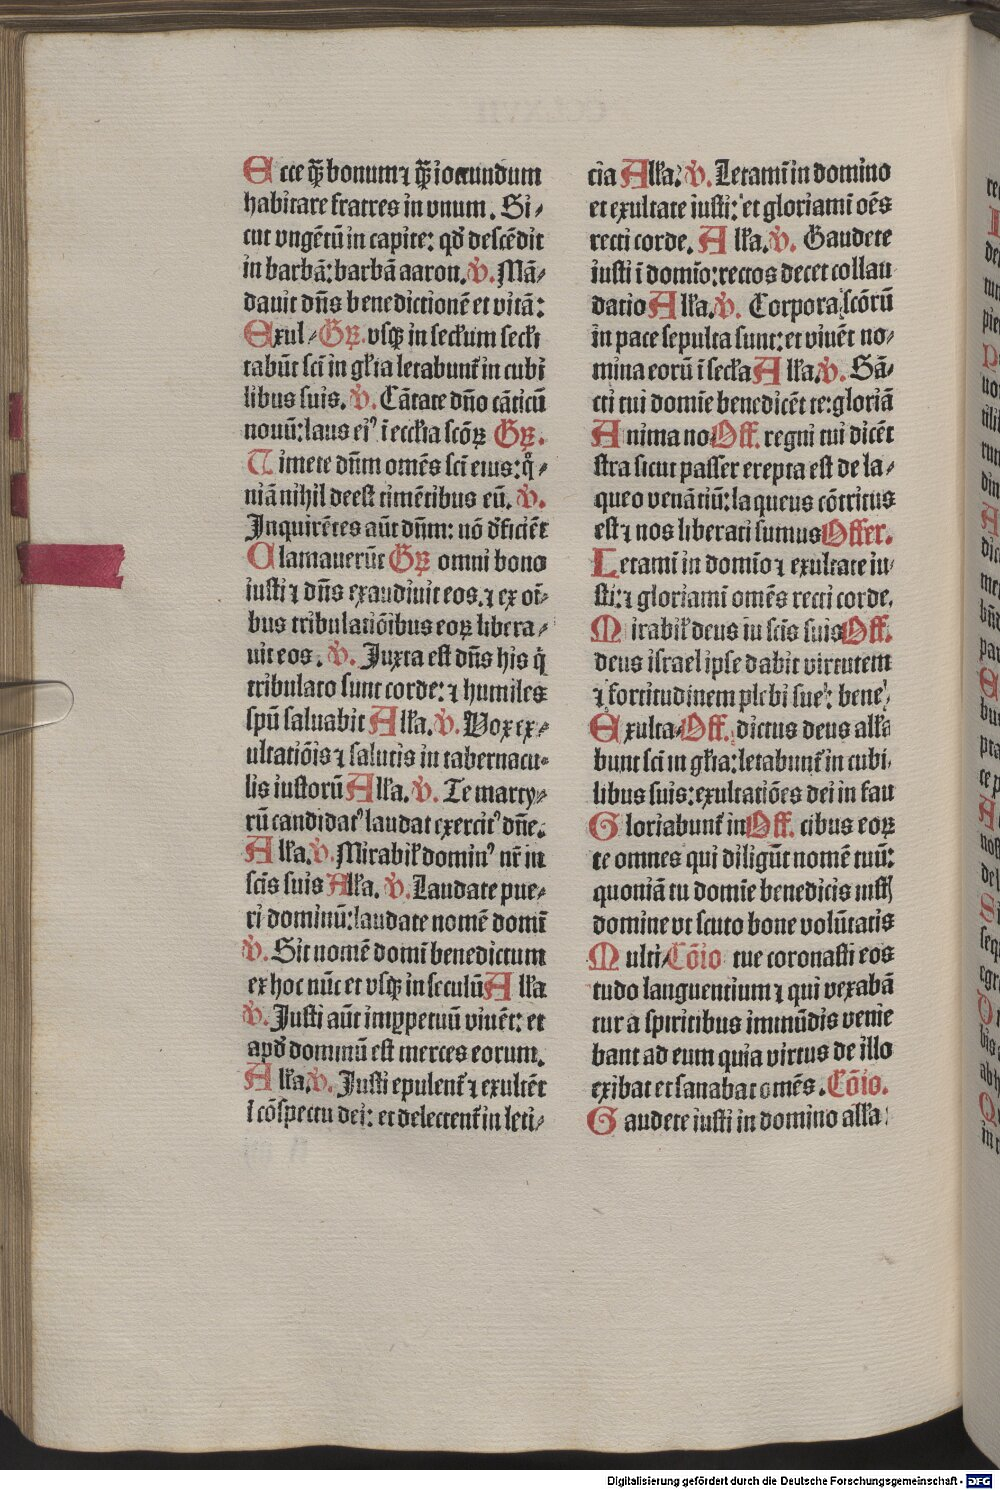 Ecce qͣ̄ bonum ⁊ qͣ̄ iocundum
habitare fratres in vnum. Si⸗
cut vngētū in capite: qđ descēdit
in barbā: barbā aaron. ℣. Mā⸗
dauit dn̄s benedictionē et vitā:
Exul⸗ Gꝝ. vsqꝫ in seclum secli
tabūt sci in glia letabunt̄ in cubi
libus suis. ℣. Cātate dn̄o cāticū
nouū: laus eiꝰ ī ecclia scōꝝ Gꝝ.
Timete dn̄m omēs sci eius: qͦ⸗
niā nihil deest timētibus eū. ℣.
Inquirētes aūt dn̄m: nō đficiēt
Clamauerūt Gꝝ omni bono
iusti ⁊ dn̄s exaudiuit eos. ⁊ ex oī⸗
bus tribulatiōibus eoꝝ libera⸗
uit eos. ℣. Juxta est dn̄s his q̄
tribulato sunt corde: ⁊ humiles
spū saluabit Alła. ℣. Vox ex⸗
ultatiōis ⁊ salutis in tabernacu⸗
lis iustorū Alła. ℣. Te marty⸗
rū candidatꝰ laudat exercitꝰ dn̄e.
Alła. ℣. Mirabił dominꝰ nr̄ in
scīs suis Alła. ℣. Laudate pue⸗
ri dominū: laudate nomē domī
℣. Sit nomē domī benedictum
ex hoc nūc et vsqꝫ in seculū Alła
℣. Justi aūt imꝑpetuū viuēt: et
apđ dominū est merces eorum.
Alła. ℣. Justi epulent̄ ⁊ exultēt
ī cōspectu dei: et delectent̄ in leti⸗
cia Alła. ℣. Letamī in domino
et exultate iusti: et gloriamī oēs
recti corde. Alła. ℣. Gaudete
iusti ī domīo: rectos decet collau
datio Alła. ℣. Corpora scōrū
in pace sepulta sunt: et viuēt no⸗
mina eorū ī secła Alła. ℣. Sā⸗
cti tui domīe benedicēt te: gloriā
Anima no Off. regni tui dicēt
stra sicut passer erepta est de la⸗
queo venātiū: laqueus cōtritus
est ⁊ nos liberati sumus Offer.
Letamī in domīo ⁊ exultate iu⸗
sti: ⁊ gloriamī omēs recti corde.
Mirabił deus in scīs suis Off.
deus israel ipse dabit virtutem
⁊ fortitudinem plebi sue: bene
Exulta⸗ Off. dictus deus alła
bunt sci in glia: letabunt̄ in cubi⸗
libus suis: exultatiōes dei in fau
Gloriabunt̄ in Off. cibus eoꝝ
te omnes qui diligūt nomē tuū:
quoniā tu domīe benedicis iusto
domine vt scuto bone volūtatis
Multi⸗ Cōio tue coronasti eos
tudo languentium ⁊ qui vexabā
tur a spiritibus immūdis venie
bant ad eum quia virtus de illo
exibat et sanabat omēs. Cōio.
Gaudete iusti in domino alła:
Digitalisierung gefördert durch die Deutsche Forschungsgemeinschaft - DFG